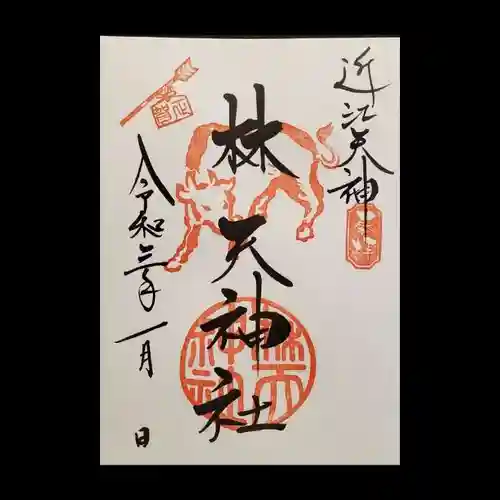 近江天神
林天神社
令和三年一月 日